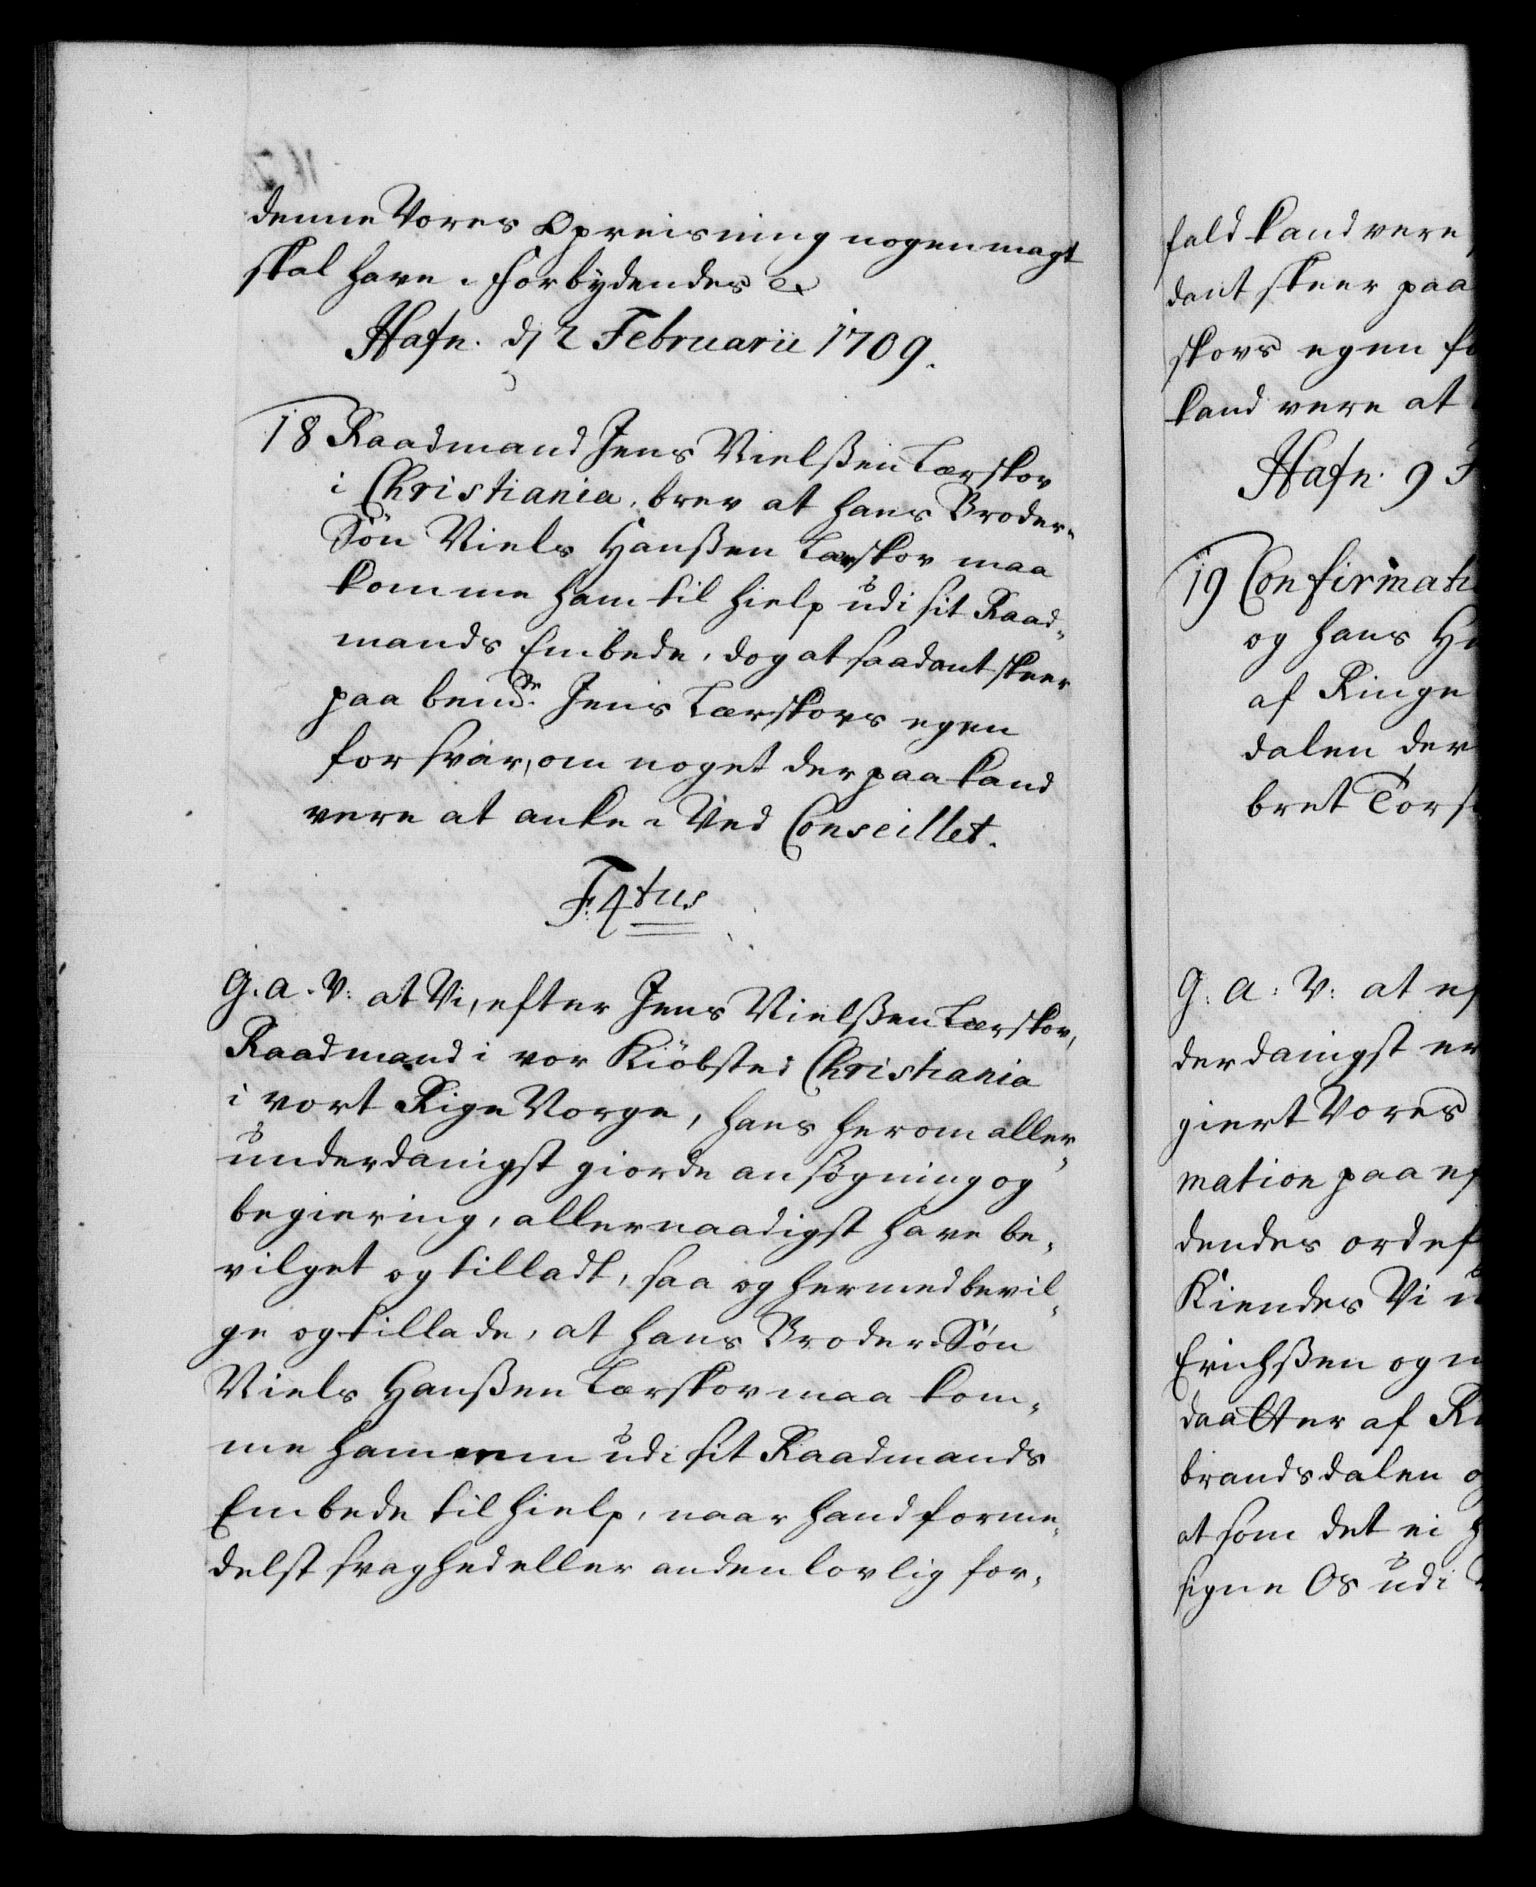 denne Vores Opreisning nogen magt
skal have. Forbydendes &
Hafn. d 2 Februarii 1709.
18 Raadmand Jens Nielßen Lerskov
i Christiania, brev at hans Broder-
Søn Niels Hanßen Lerskov maa
komme ham til hielp udi sit Raad-
mands Embede, dog at saadant skeer
paa bem.te Jens Lerskovs egen
forsvar, om noget derpaa kand
vere at anke. Ved Conseillet.
F. 4tus
G. A. V: at Vi, efter Jens Nielßen Lerskov,
Raadmand i vor Kiöbsted Christiania
i vort Rige Norge, hans herom aller-
underdanigst giorde ansøgning og
begiering, allernaadigst have be-
vilget og tilladt, saa og hermed bevil-
ge og tillade, at hans Broder Søn
Niels Hanßen Lerskov maa kom-
me ham udi sit Raadmands
Embede til hielp, naar hand forme-
delst svaghed eller anden lovlig for-
fald kand vere,
dant skeer paa
skovs egen
kand vere at
Hafn. 9
19 Confirmati
og hans
af Ringe
dalen der
bret
G: A: V: at
derdanigst er
giert Vores
mation paa
dendes ord
Kiendes Vi
Erichßen og
daatter af
brandsdalen
at som det ei
signe Os udi